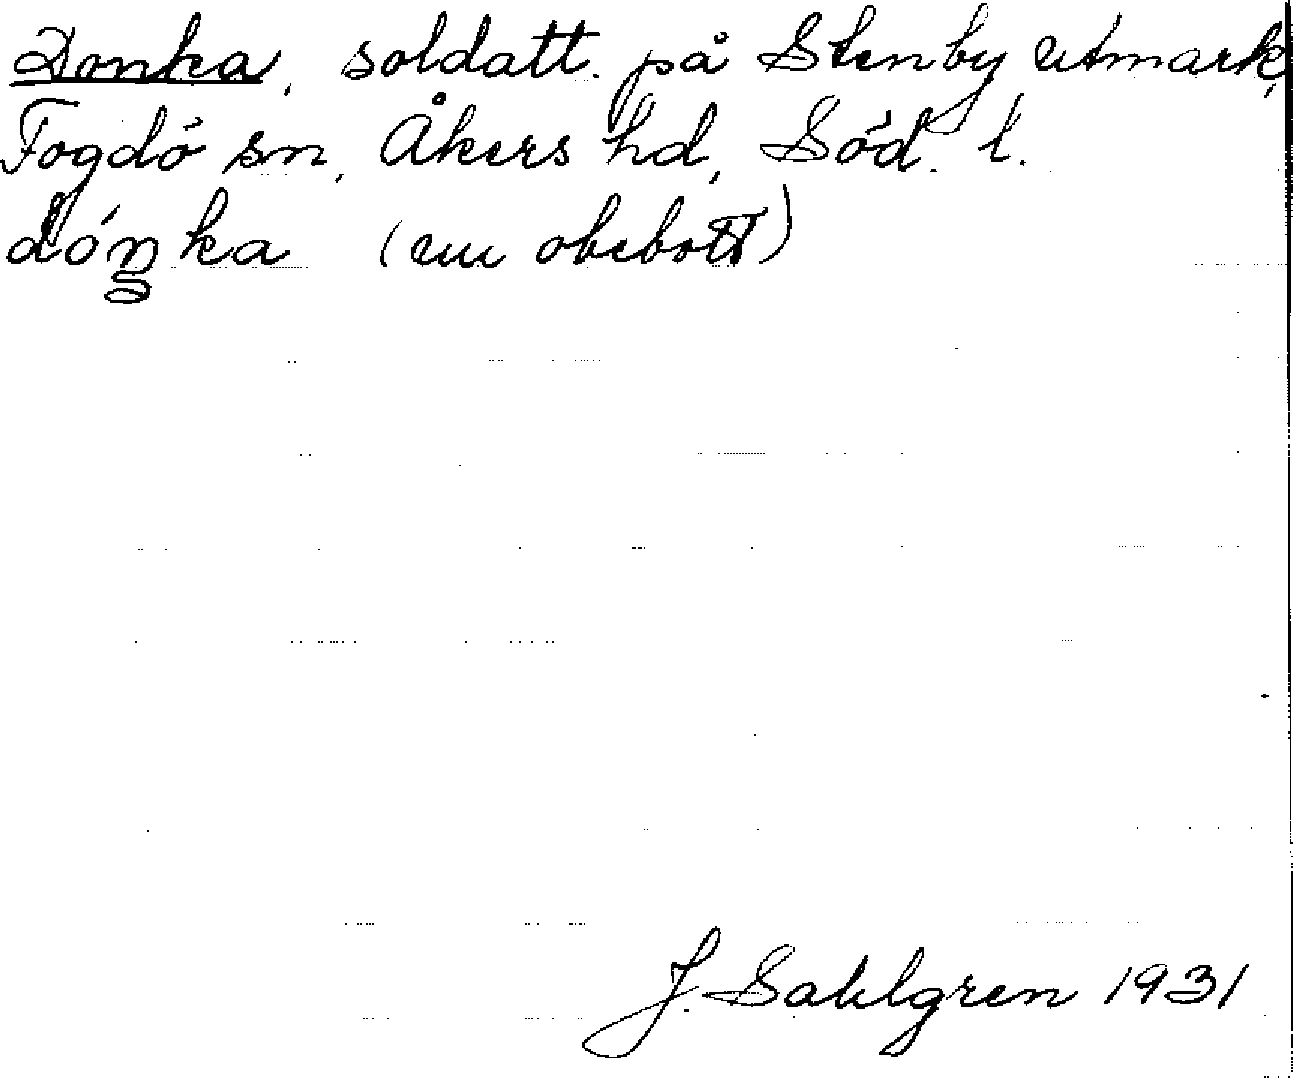 Donka, soldatt. på Stenby utmark,
Fogdö sn, Åkers hd, Söd. l.
dóŋka (nu obebott)
J. Sahlgren 1931